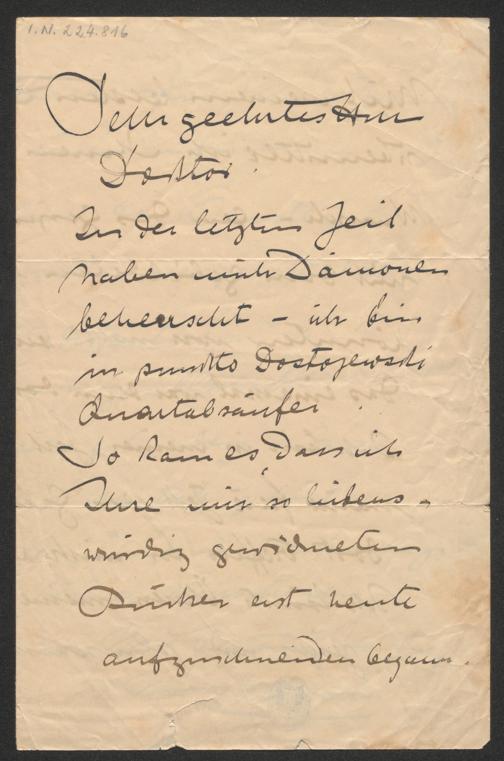 I.N. 224.816
Sehr geehrtes Herr
Doktor.
In der letzten Zeit
haben mich Dämonen
beherrscht – ich bin
in punkto Dostojewski
Quartalsäufer.
So kam es, dass ich
Ihre mir so liebens-
würdig gewidmeten
Bücher erst heute
aufzuschneiden begann.